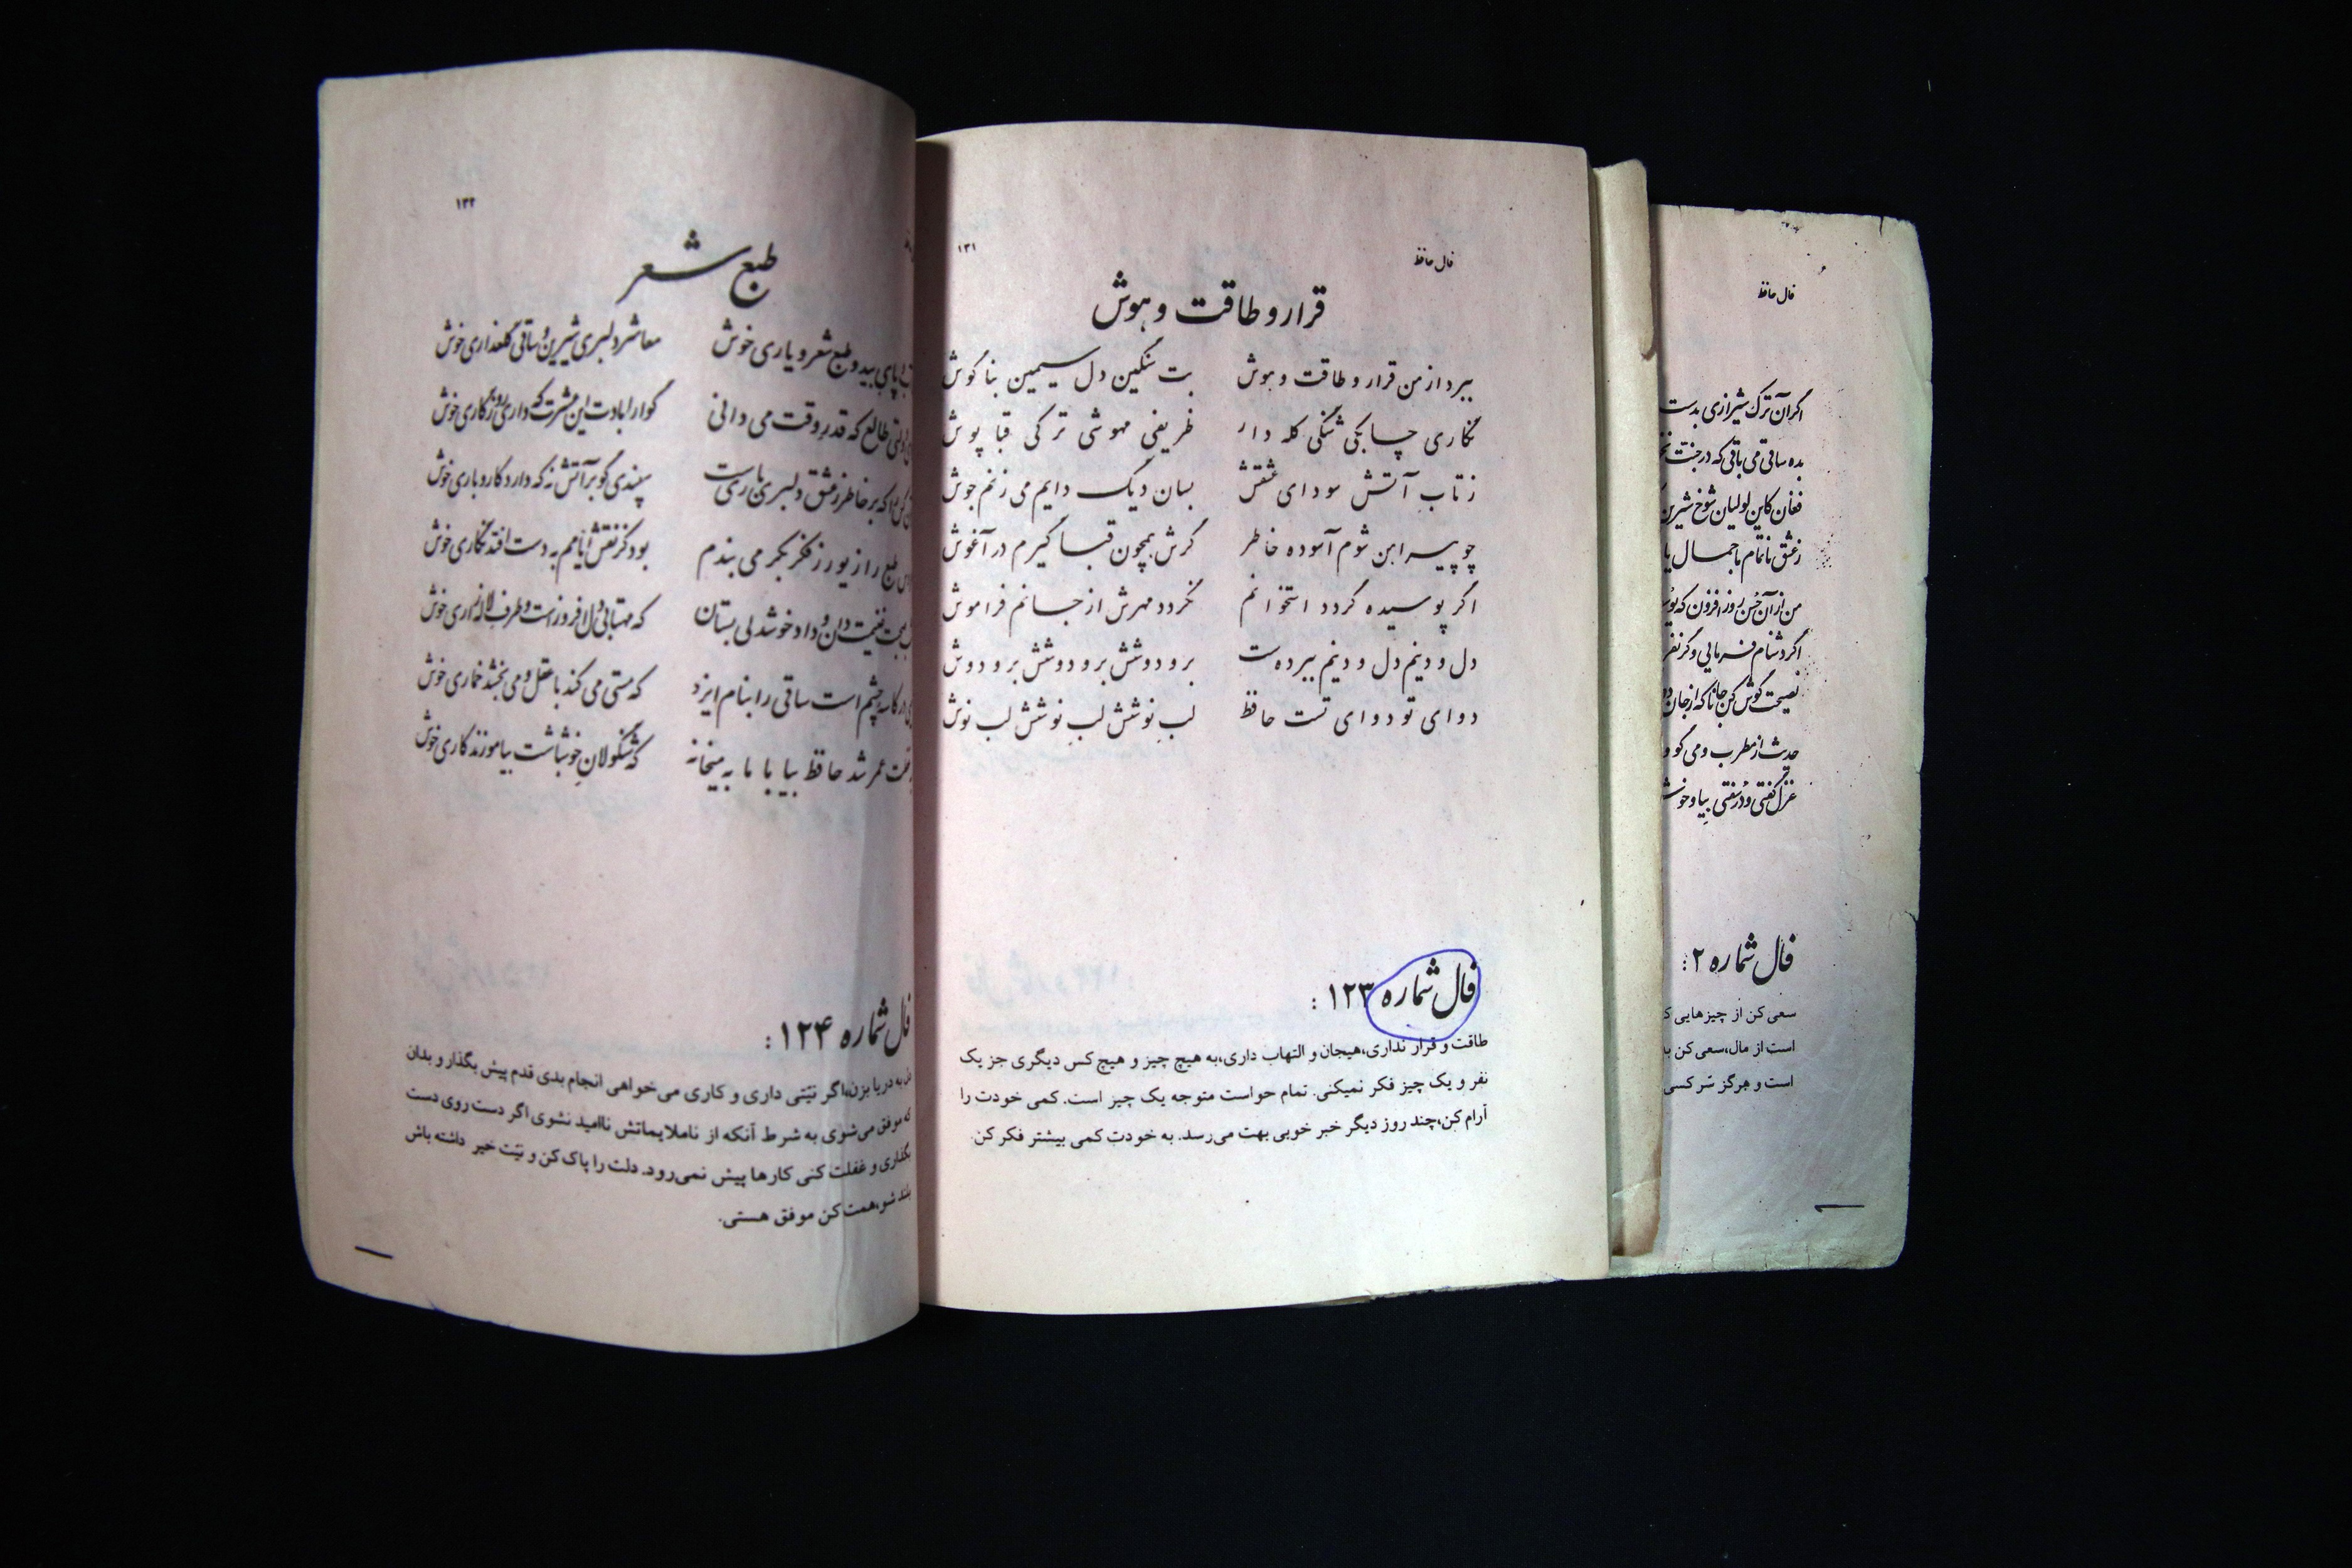 فال حافظ
اگر آن ترک شیرازی بدست
بده ساقی می باقی که در جنت
فغان کاین لولیان شوخ شیرین
ز عشق ناتمام ما جمال یا
من از آن حُسن روز افزون که یوسف
اگر دشنام فرمایی و گر نفر
نصیحت گوش کن جانا که از جان
حدیث از مطرب و می گو و
غزل گفتی و دُر سفتی بیا و خوش
فال شماره ۲:
سعی کن از چیزهایی ک
است از مال،سعی کن به
است و هرگز سّر کسی
فال حافظ ۱۳۱
قرار و طاقت و هوش
ببرد از من قرار و طاقت و هوش بت سنگین دل سیمین بناگوش
نگاری چابکی شنگی کله دار ظریفی مهوشی ترکی قبا پوش
ز تاب آتش سودای عشقش بسان دیگ دایم می زنم جوش
چو پیراهن شوم آسوده خاطر گرش همچون قبا گیرم در آغوش
اگر پوسیده گردد استخوانم نگردد مهرش از جانم فراموش
دل و دینم دل و دینم ببرده ست بر و دوشش بر و دوشش بر و دوش
دوای تو دوای تست حافظ لب نوشش لب نوشش لب نوش
فال شماره ۱۲۳ :
طاقت و قرار نداری،هیجان و التهاب داری،به هیچ چیز و هیچ کس دیگری جز یک
نفر و یک چیز فکر نمیکنی. تمام حواست متوجه یک چیز است. کمی خودت را
آرام کن،چند روز دیگر خبر خوبی بهت می‌رسد. به خودت کمی بیشتر فکر کن.
۱۳۲
طبع شعر
پای بید و طبع شعر و یاری خوش معاشر دلبری شیرین و ساقی گلعذاری خوش
طالع که قدر وقت می دانی گوارا بادت این عشرت که داری روزگاری خوش
که بر خاطر ز عشق دلبری باری ست سپندی گو بر آتش نه که دارد کار و باری خوش
طبع را زیور ز فکر بکر می بندم بود کز نقش ایامم به دست افتد نگاری خوش
غنیمت دان و داد خوشدلی بستان که مهتابی دل افروز است و طرف لاله زاری خوش
در کاسهٔ چشم است ساقی را بنام ایزد که مستی می کند با عقل و می بخشد خماری خوش
عمر شد حافظ بیا با ما به میخانه که شنگولان خوشباشت بیاموزند کاری خوش
فال شماره ۱۲۴ :
دل به دریا بزن،اگر نیّتی داری و کاری می‌خواهی انجام بدی قدم پیش بگذار و بدان
که موفق می‌شوی به شرط آنکه از ناملایماتش ناامید نشوی اگر دست روی دست
بگذاری و غفلت کنی کارها پیش نمی‌رود. دلت را پاک کن و نیّت خیر داشته باش
بلند شو،همت کن موفق هستی.